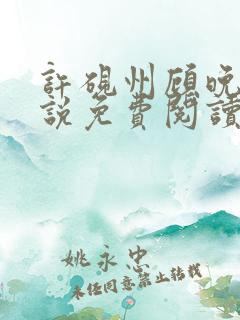 許硯州顧晚
說免費閱讀
姚永忠
未經同意禁止轉載